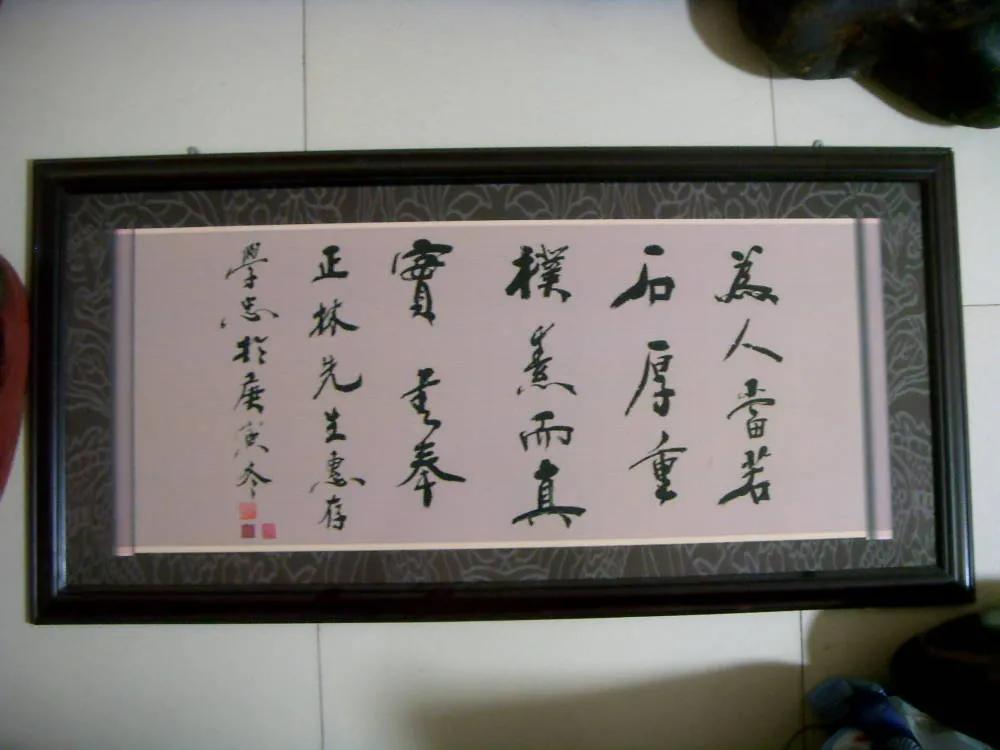 為人當若
石厚重
樸素而真
實 書奉
正林先生惠存
學忠於庚寅冬